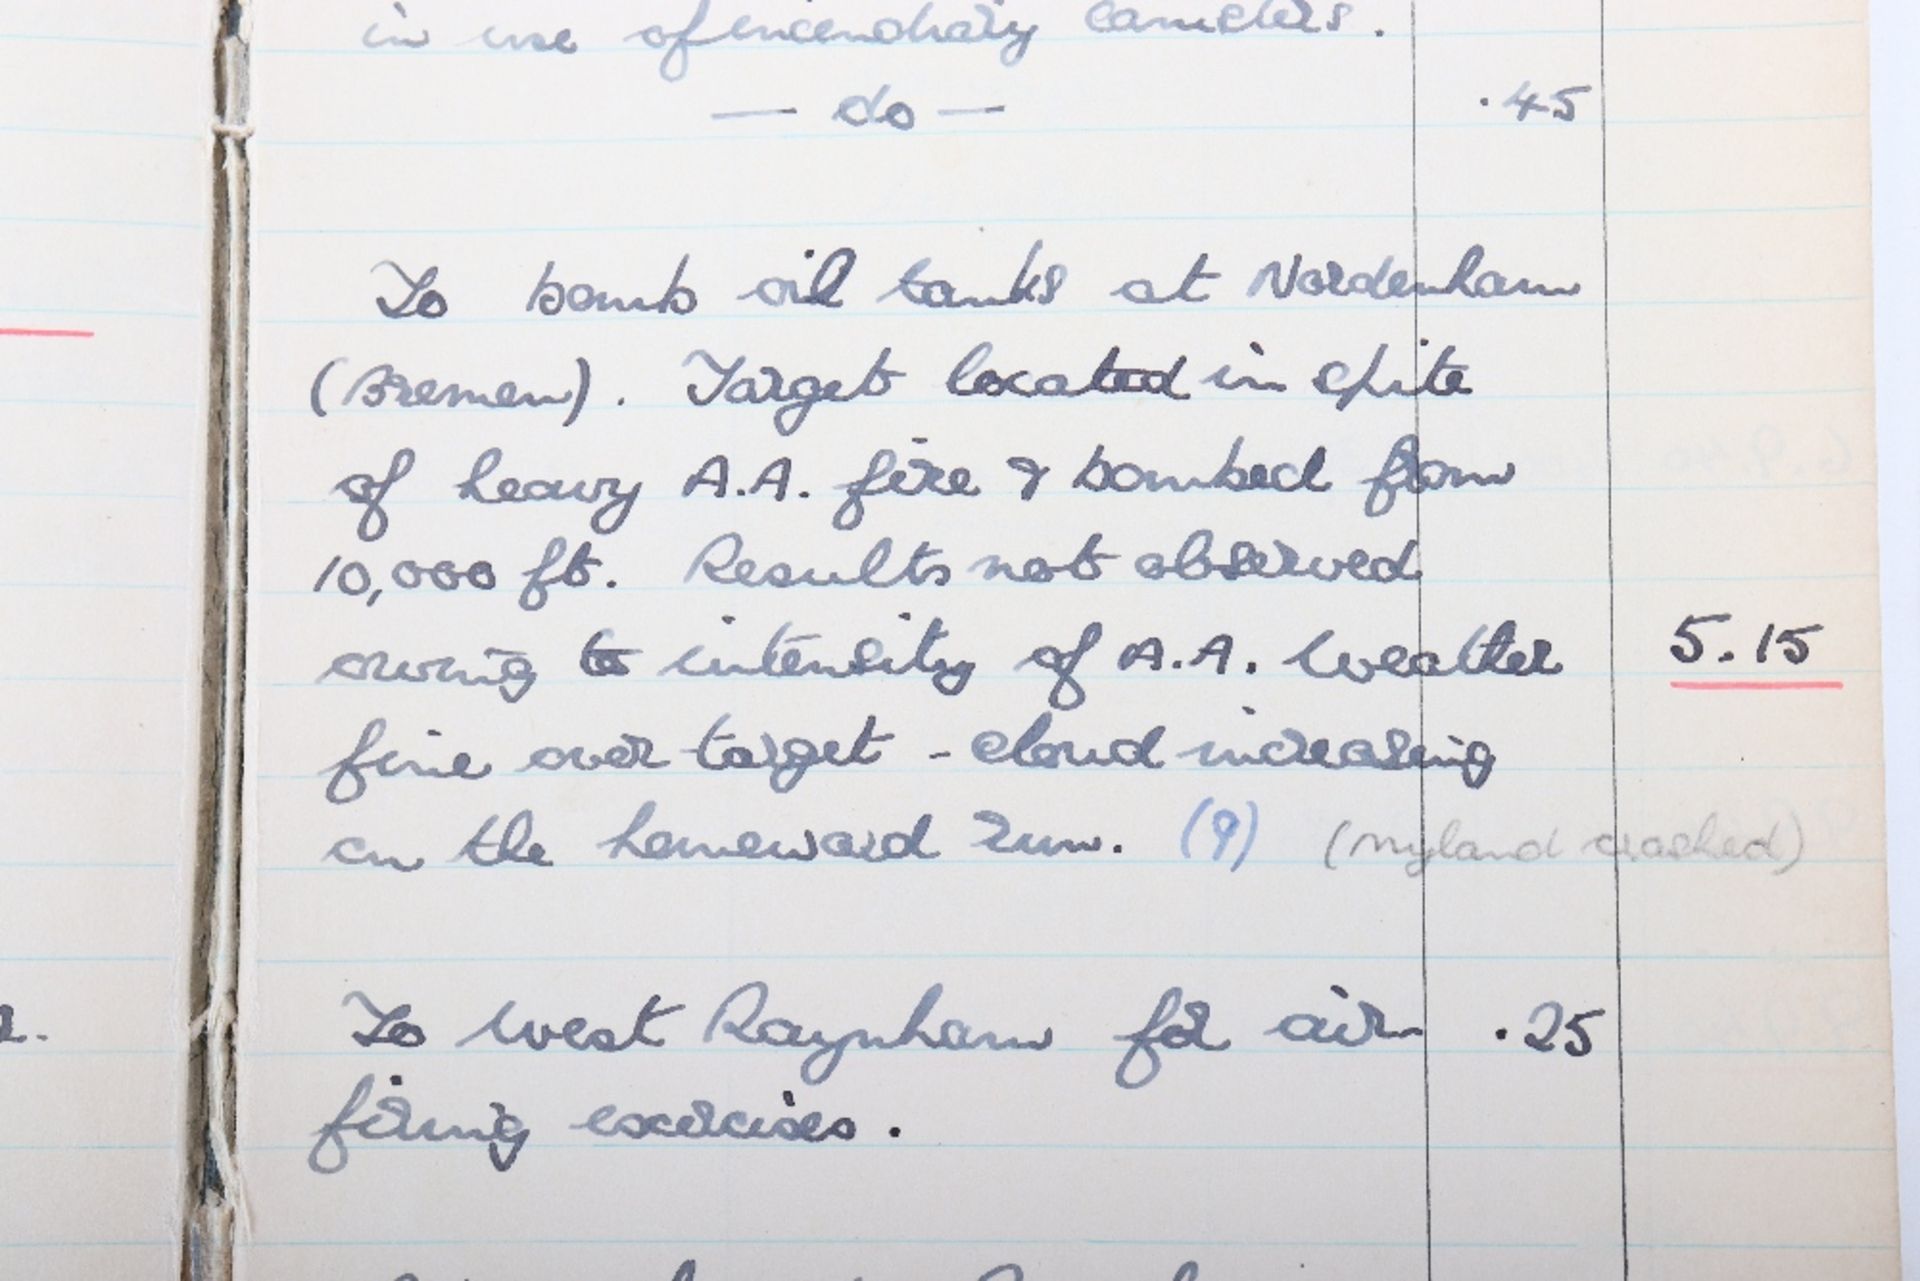 in use of incendiary
— do — .45
To bomb oil tanks at Nordenham
(Bremen). Target located in spite
of heavy A.A. fire & bombed from
10,000 ft. Results not observed
owing to intensity of A.A. Weather 5.15
fine over target - cloud increasing
on the homeward run. (9) (Myland crashed)
To West Raynham for air .25
firing exercises.